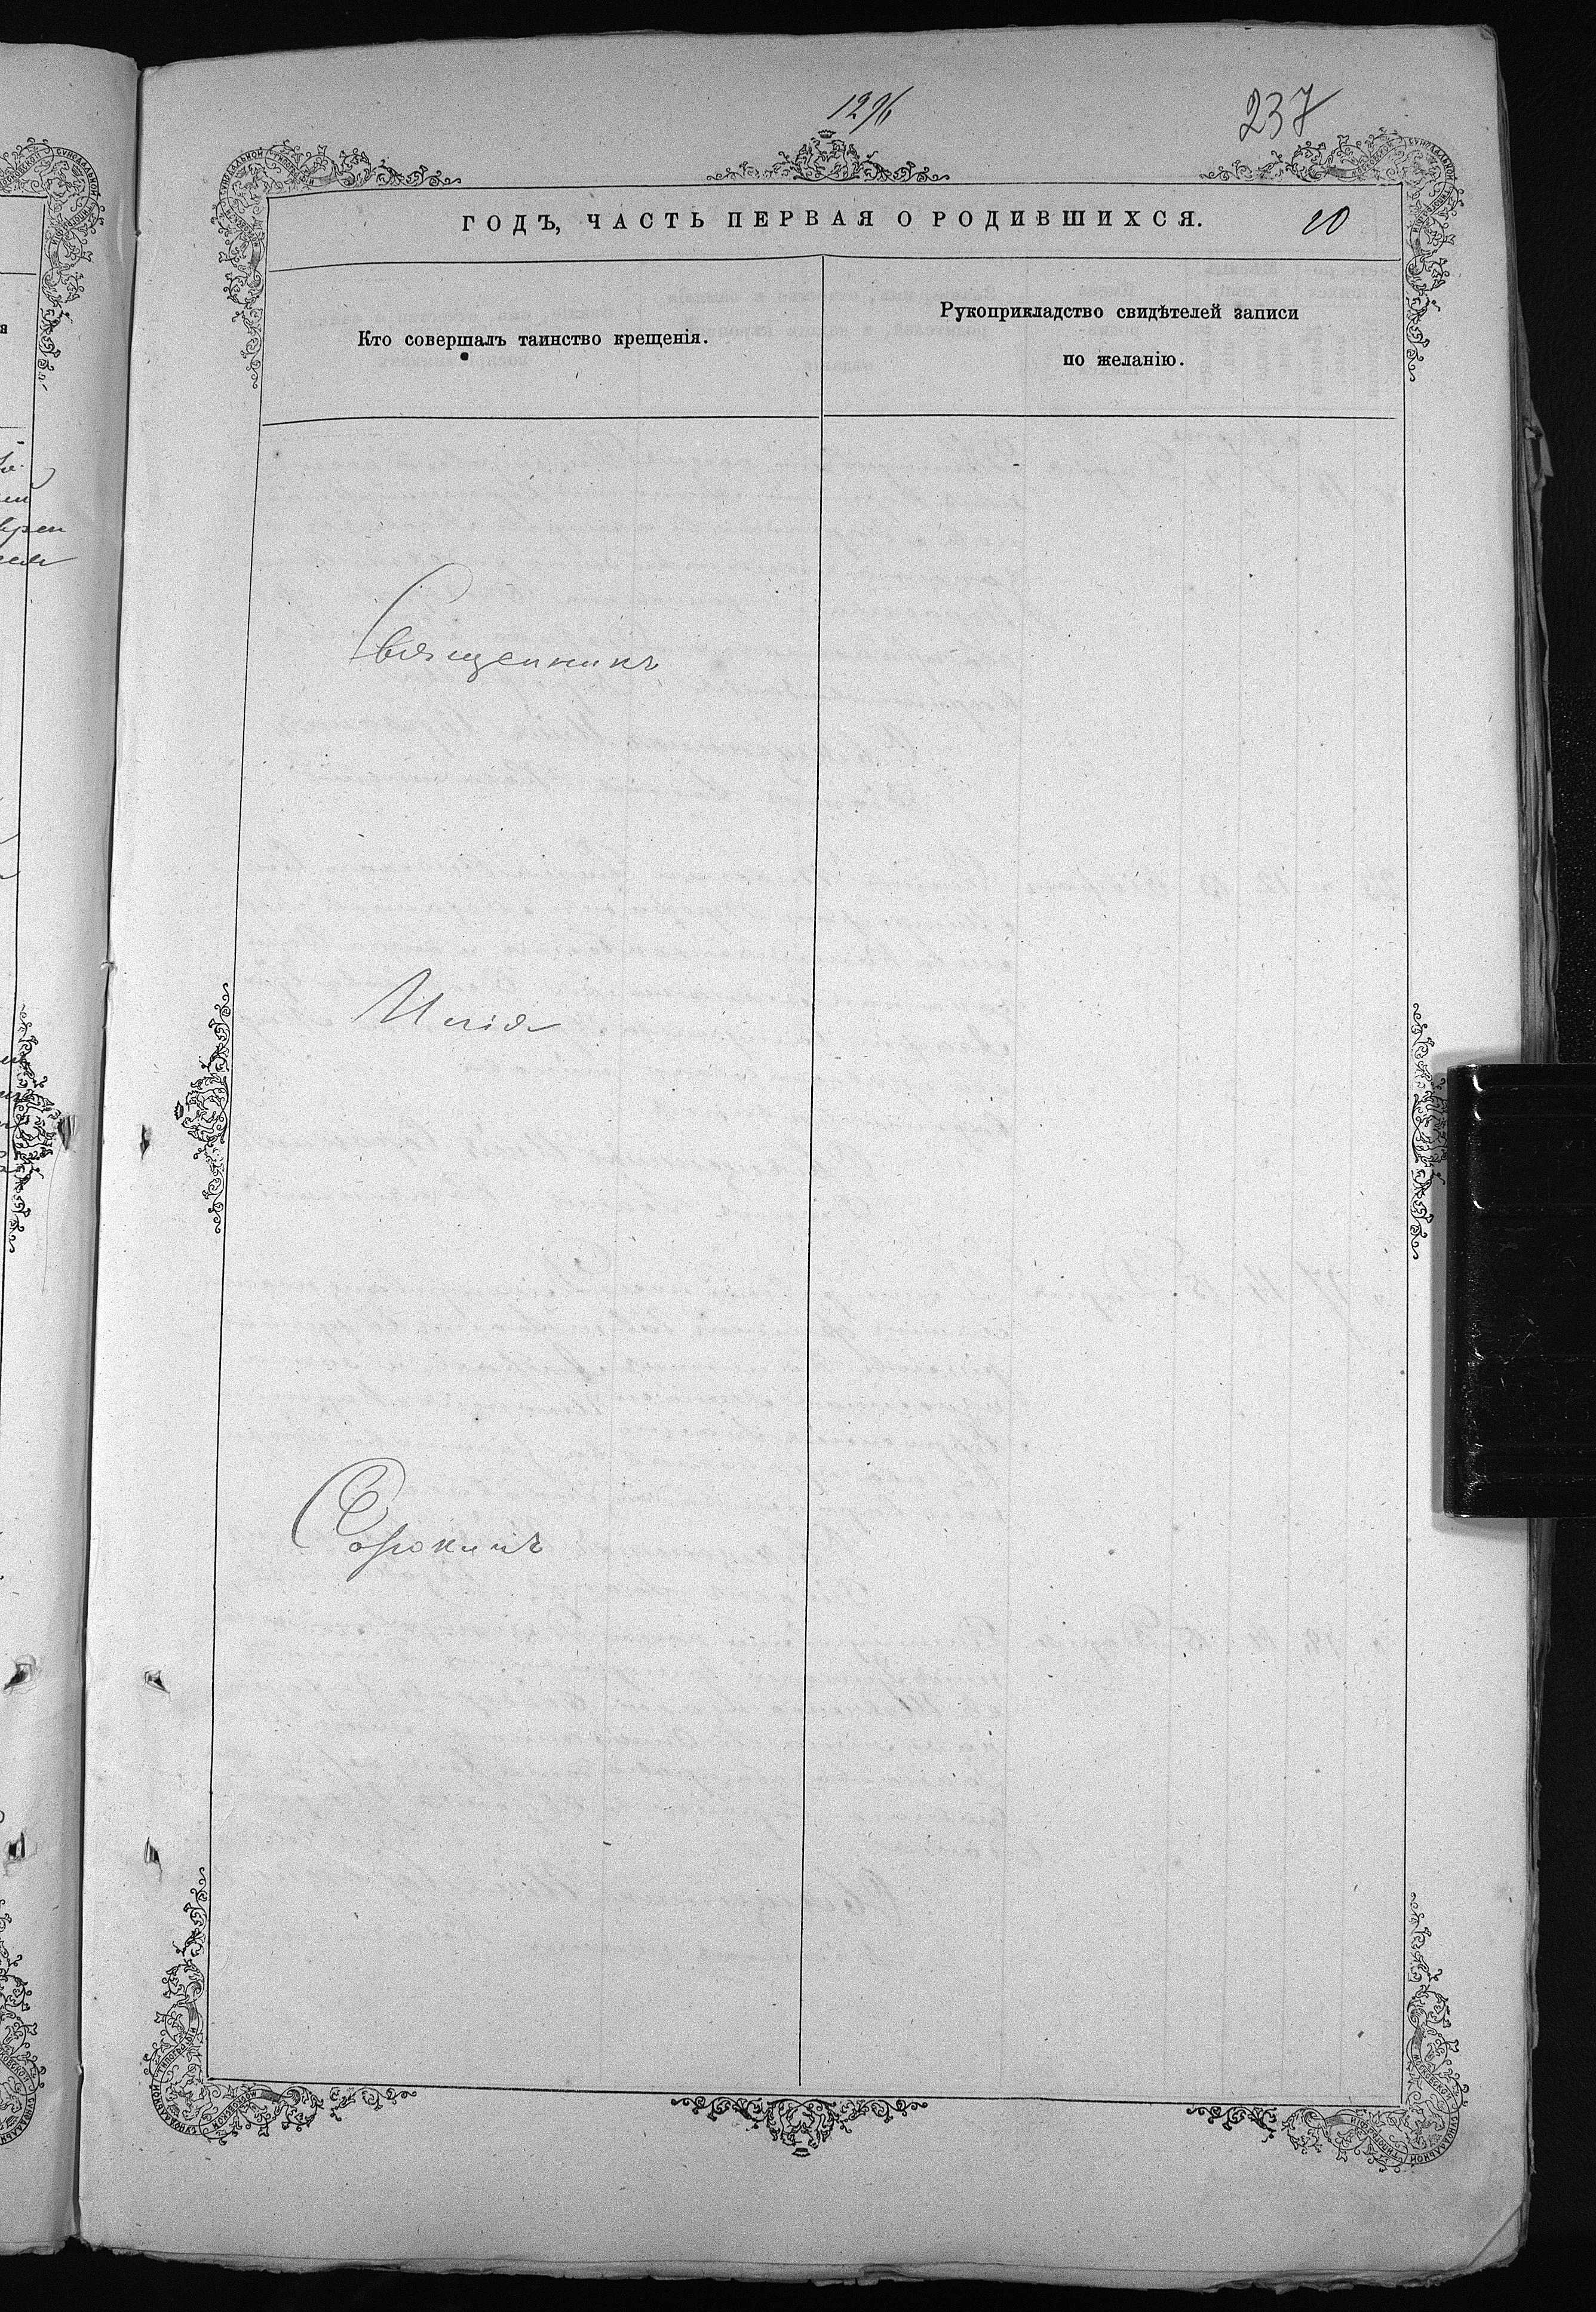 1296
237
ГОДЪ, ЧАСТЬ ПЕРВАЯ О РОДИВШИХСЯ.
20
Кто совершалъ таинство крещенія.
Рукоприкладство свидѣтелей записи
по желанію.
Священникъ
Илія
Сорокинъ